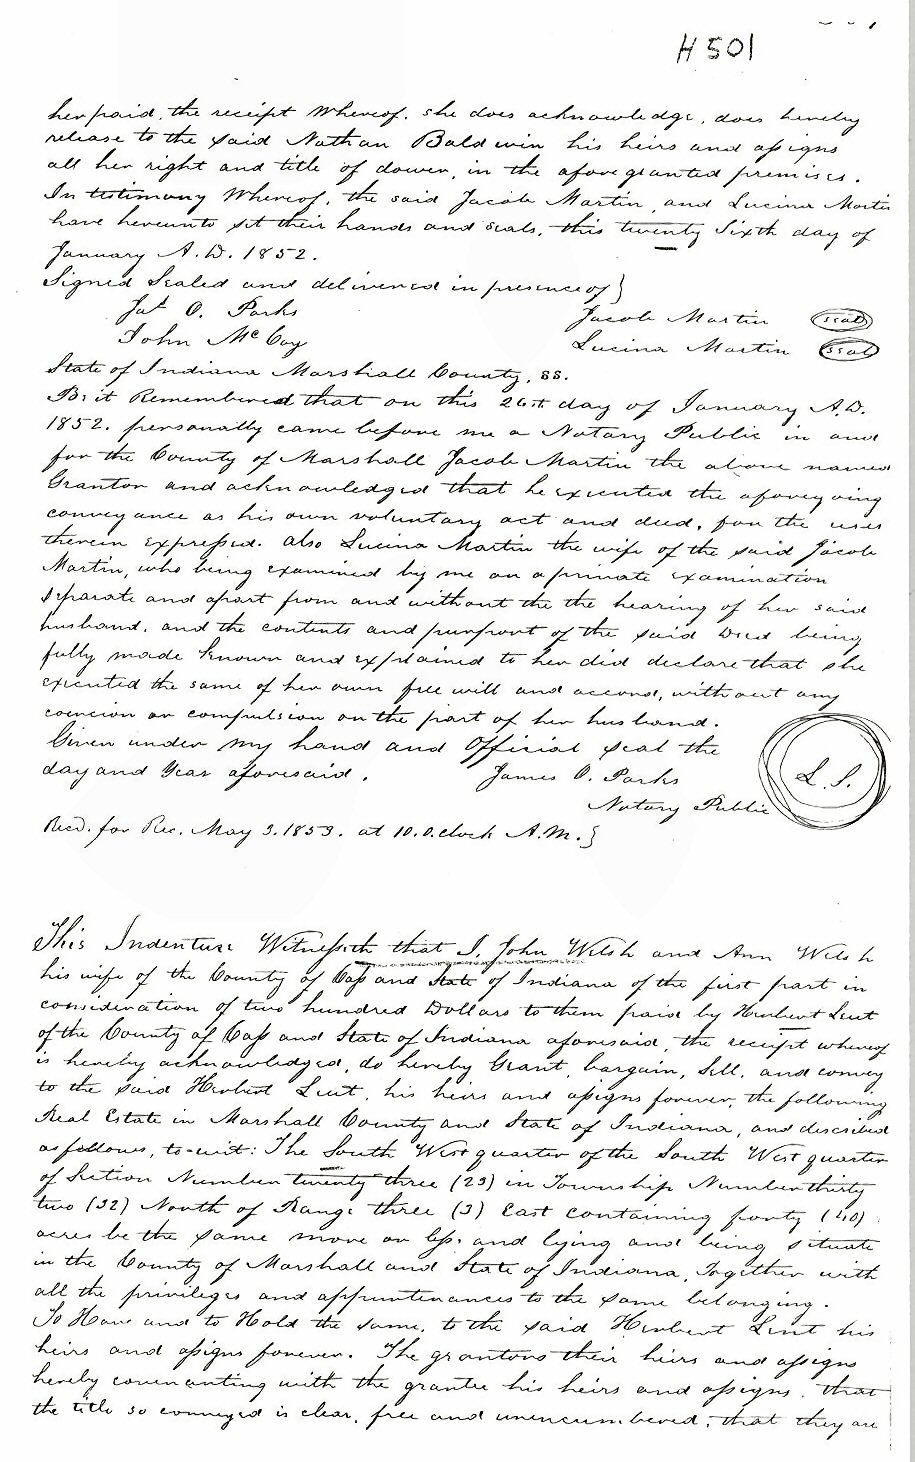 H 501
her paid, the receipt Whereof, she does acknowledge, does hereby
release to the said Nathan Baldwin his heirs and assigns
all her right and title of dower, in the aforegranted premises.
In testimony Whereof, the said Jacob Martin, and Lucina Martin
have hereunto set their hands and seals, this twenty Sixth day of
January A.D. 1852.
Signed Sealed and delivered in presence of }
Jas. O. Parks
Jacob Martin (seal)
John McCoy
Lucina Martin (seal)
State of Indiana Marshall County, SS.
Be it Remembered that on this 26th day of January A.D.
1852. personally came before me a Notary Public in and
for the County of Marshall Jacob Martin the above named
Grantor and acknowledged that he executed the aforegoing
conveyance as his own voluntary act and deed, for the uses
therein expressed. Also Lucina Martin the wife of the said Jacob
Martin, who being examined by me on a private examination
separate and apart from and without the the hearing of her said
husband, and the contents and purport of the said Deed being
fully made known and explained to her did declare that she
executed the same of her own free will and accord, without any
coercion or compulsion on the part of her husband.
Given under my hand and Official seal the
day and Year aforesaid.
James O. Parks
L. S.
Notary Public
Recd. for Rec. May 3. 1853. at 10. O.clock A.M. }
This Indenture Witnesseth that I, John Welsh and Ann Welsh
his wife of the County of Cass and State of Indiana of the first part in
consideration of two hundred Dollars to them paid by Herbert Lent
of the County of Cass and State of Indiana aforesaid, the receipt whereof
is hereby acknowledged, do hereby Grant, bargain, Sell, and convey
to the said Herbert Lent, his heirs and assigns forever, the following
Real Estate in Marshall County and State of Indiana, and described
as follows, to-wit: The South West quarter of the South West quarter
of Section Number twenty three (23) in Township Number thirty
two (32) North of Range three (3) East containing forty (40)
acres be the same more or less, and lying and being situate
in the County of Marshall and State of Indiana, Together with
all the privileges and appurtenances to the same belonging.
To Have and to Hold the same, to the said Herbert Lent his
heirs and assigns forever. The grantors their heirs and assigns
hereby covenanting with the grantee his heirs and assigns, that
the title so conveyed is clear, free and unencumbered; that they are